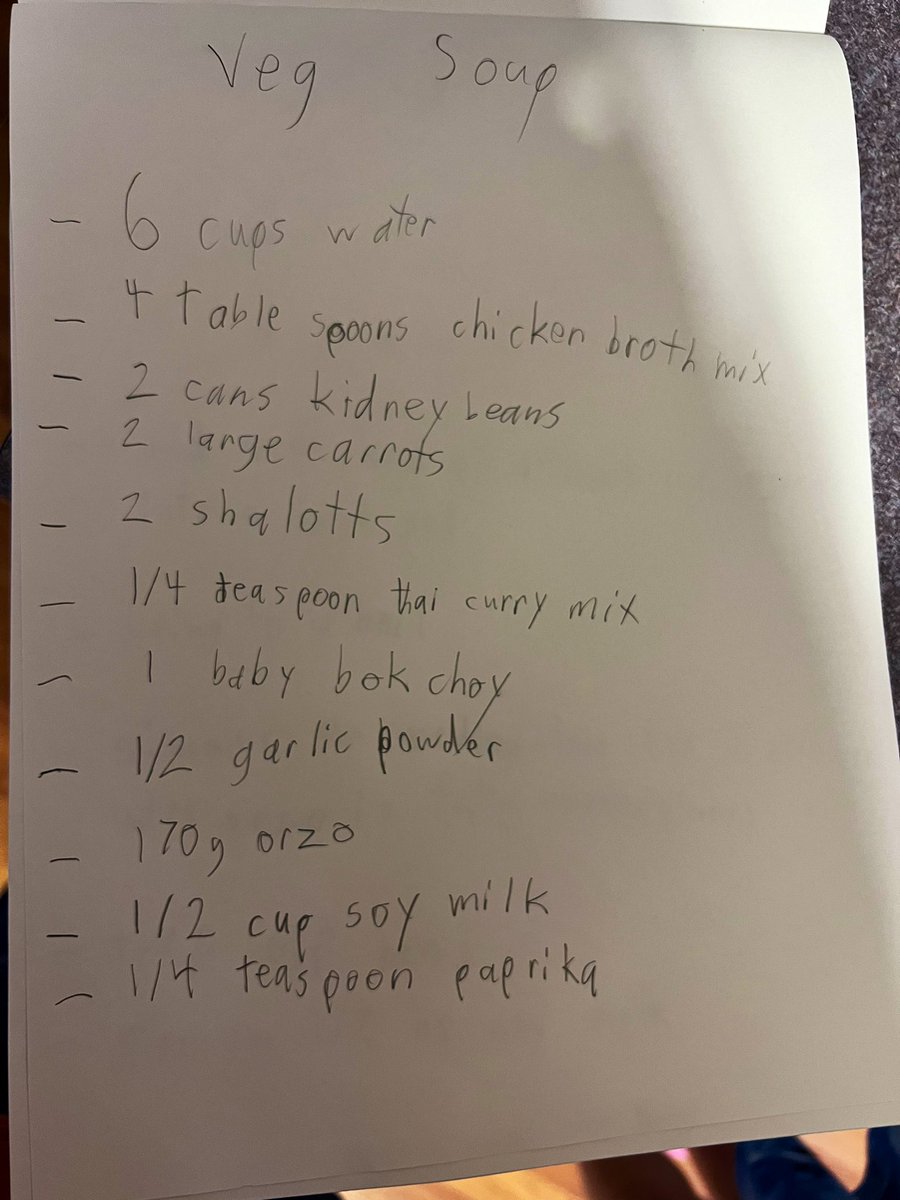 Veg Soup
- 6 cups water
- 4 table spoons chicken broth mix
- 2 cans kidney beans
- 2 large carrots
- 2 shalotts
- 1/4 teaspoon thai curry mix
- 1 baby bok choy
- 1/2 garlic powder
- 170g orzo
- 1/2 cup soy milk
- 1/4 teaspoon paprika